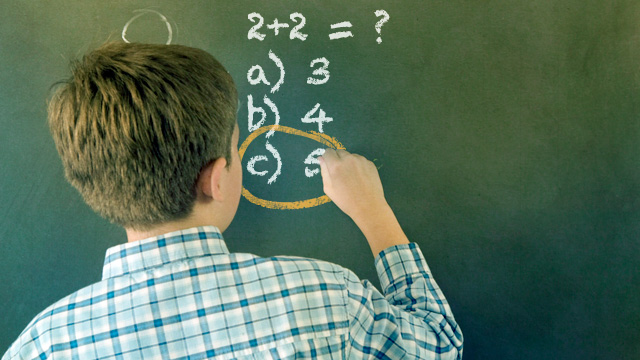 2+2 = ?
a) 3
b) 4
c) 5